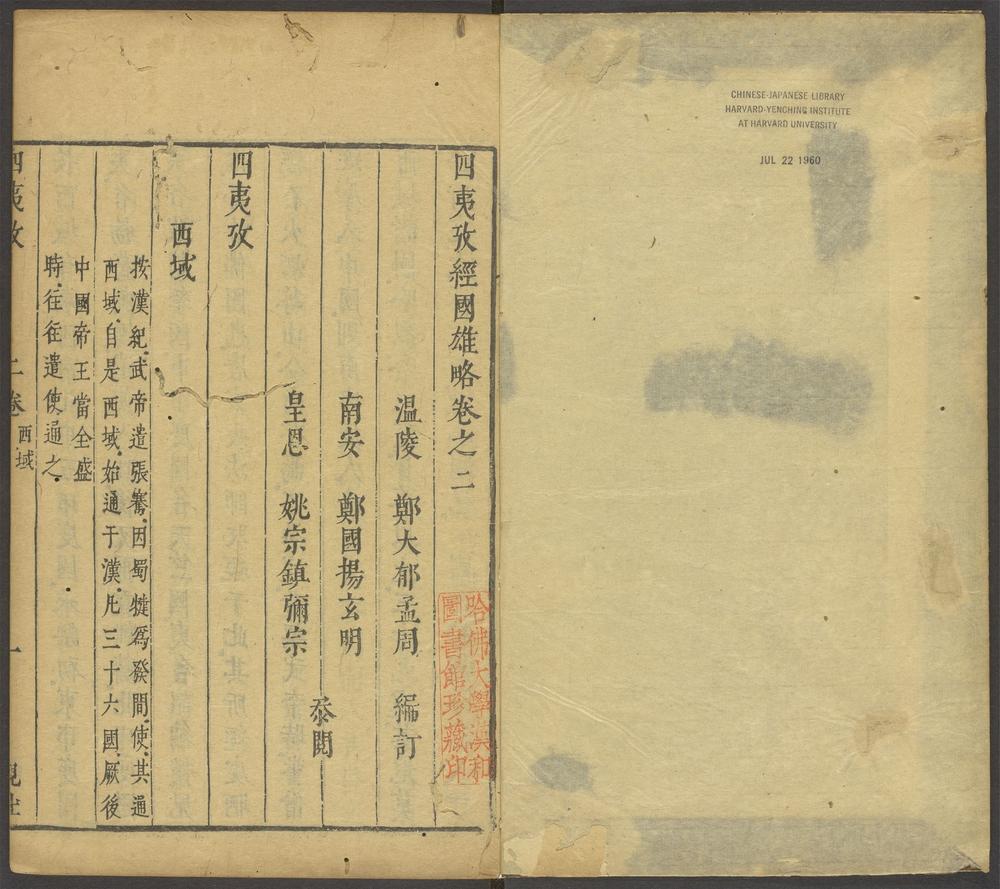 CHINESE-JAPANESE LIBRARY
HARVARD-YENCHING INSTITUTE
AT HARVARD UNIVERSITY
JUL 22 1960
四夷攷經國雄略卷之二
溫陵 鄭大郁孟周 編訂
南安 鄭國揚玄明
皇恩 姚宗鎮彌宗
叅閱
哈佛大學漢和
圖書館珍藏印
四夷攷
西域
按漢紀武帝遣張騫因蜀犍爲發間使其通
西域自是西域始通于漢凡三十六國厥後
中國帝王當全盛
時往往遣使通之
四夷攷 二卷 西域 一